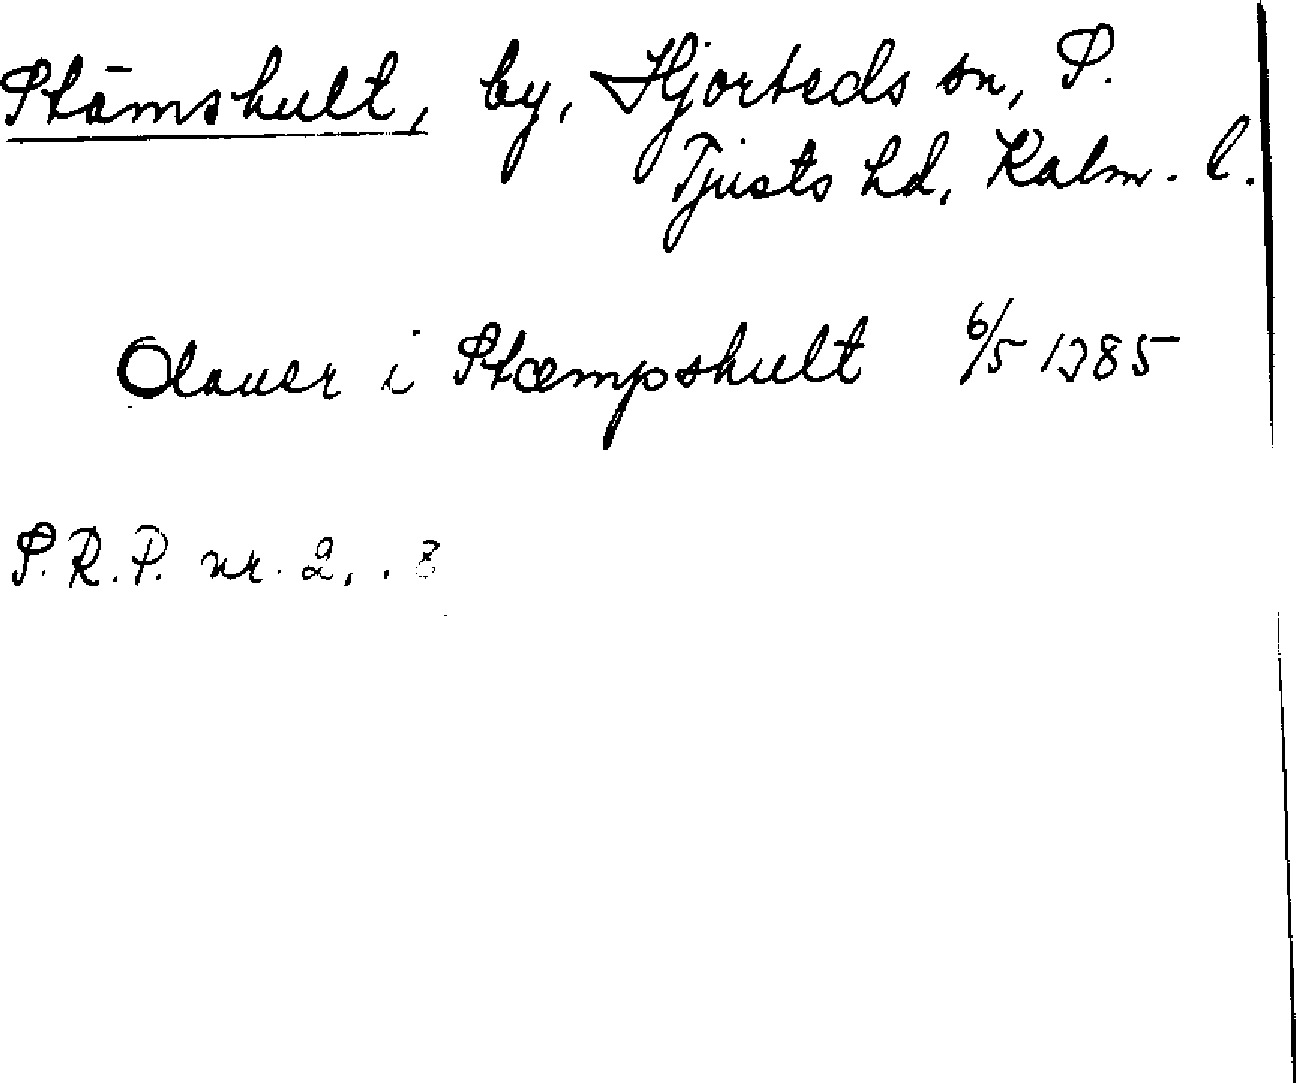 Stämshult, by, Hjorteds sn, S.
Tjusts hd, Kalm. l.
Olauer i Stæmpshult 6/5 1385
S.R.P. nr. 2. . 8